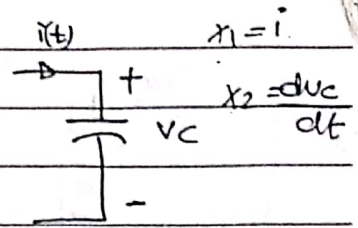 i(t)
x1 = i
+
x2 = dvc/dt
vc
-